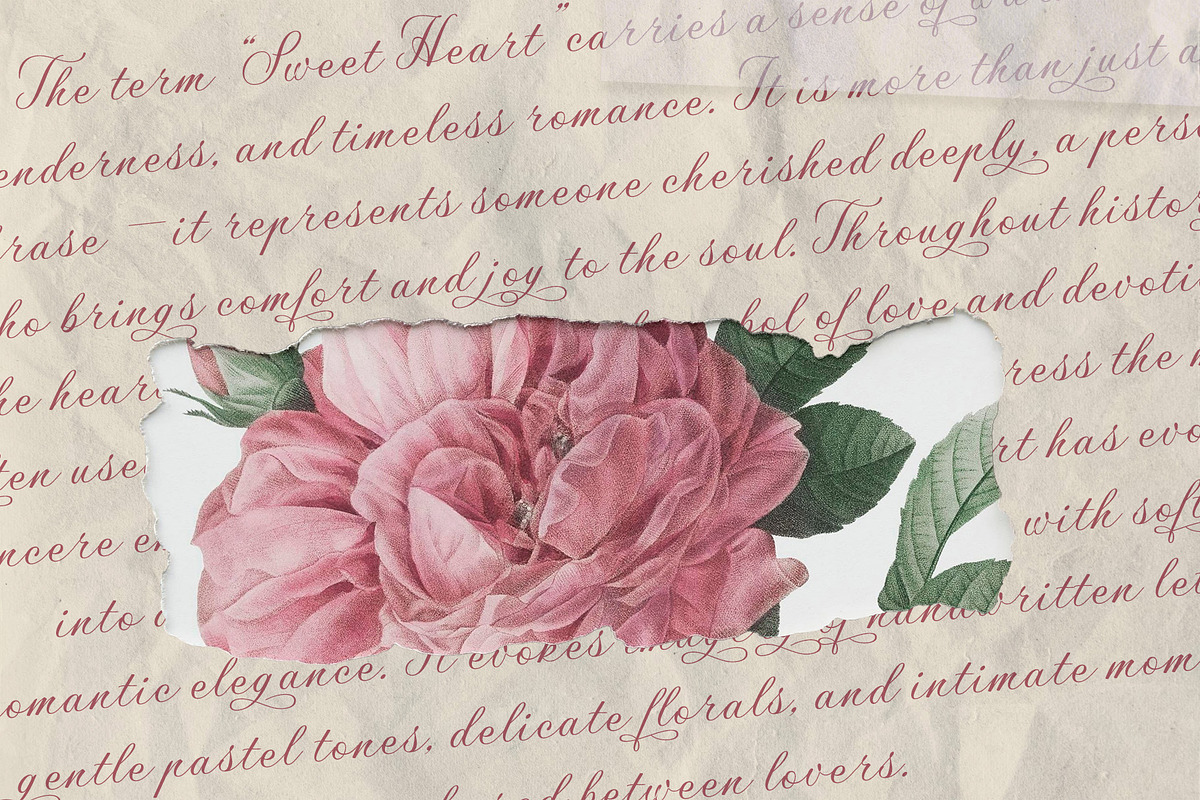 The term “Sweet Heart” carries a sense of
enderness, and timeless romance. It is more than just a
hrase — it represents someone cherished deeply, a pers
ho brings comfort and joy to the soul. Throughout histor
bol of love and devoti
he hear ress the
ten use rt has evo
ncere e with soft
into
omantic elegance. It evokes imagery of handwritten let
gentle pastel tones, delicate florals, and intimate mom
between lovers.